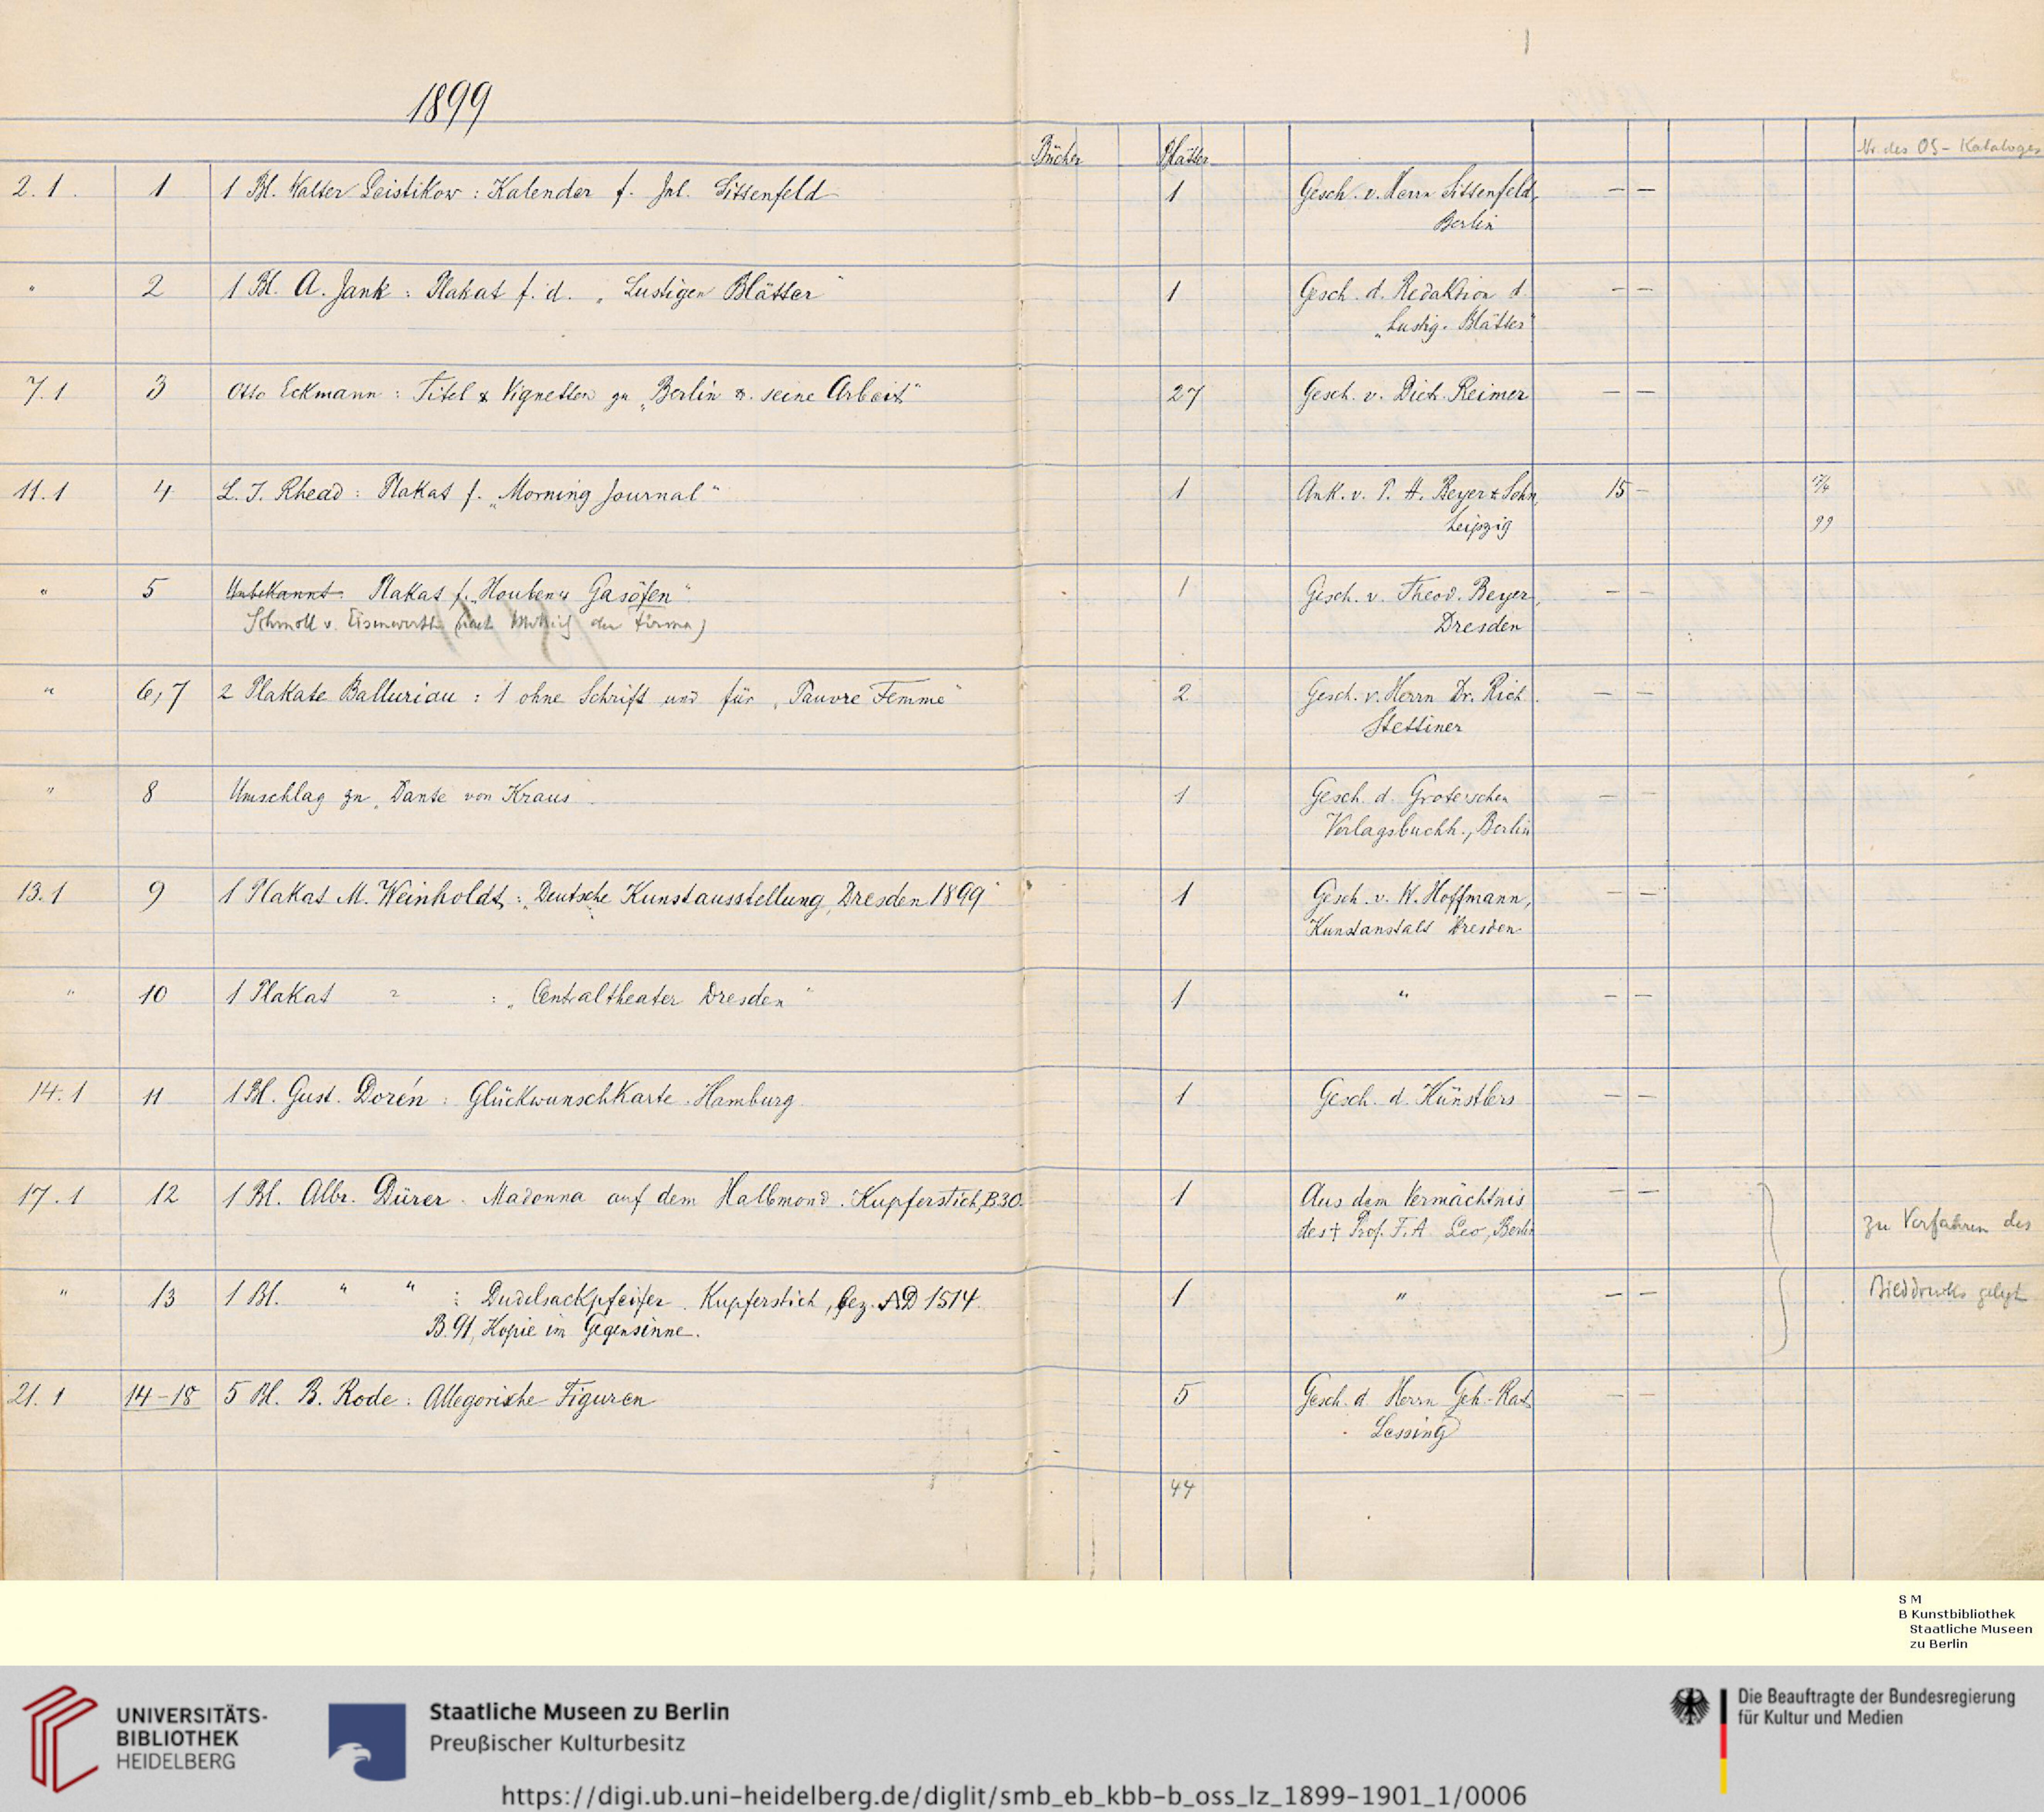 1899
Bücher Blätter Nr. des OS-Kataloges
2.1. 1 1 Bl. Walter Leistikow: Kalender f. Jul. Sittenfeld 1 Gesch. v. Herrn Sittenfeld, — —
Berlin
" 2 1 Bl. A. Jank: Plakat f. d. „Lustigen Blätter" 1 Gesch. d. Redaktion d. — —
„Lustig. Blätter"
7.1 3 Otto Eckmann: Titel & Vignetten zu „Berlin u. seine Arbeit" 27 Gesch. v. Dietr. Reimer — —
11.1 4 L. J. Rhead: Plakat f. „Morning Journal" 1 Ank. v. P. H. Beyer & Sohn, 15 —
Leipzig 99
" 5 Unbekannt: Plakat f. „Houbens Gasöfen" 1 Gesch. v. Theod. Beyer, — —
Schmoll v. Eisenwerth (nach der Firma) Dresden
" 6, 7 2 Plakate Balluriau: 1 ohne Schrift und für „Pauvre Femme" 2 Gesch. v. Herrn Dr. Rich. — —
Stettiner
" 8 Umschlag zu „Dante von Kraus" 1 Gesch. d. Grote'schen — —
Verlagsbuchh., Berlin
13.1 9 1 Plakat M. Weinholdt: „Deutsche Kunstausstellung, Dresden 1899" 1 Gesch. v. W. Hoffmann, — —
Kunstanstalt Dresden
" 10 1 Plakat " : „Centraltheater Dresden" 1 " — —
14.1 11 1 Bl. Gust. Dorén: Glückwunschkarte. Hamburg 1 Gesch. d. Künstlers — —
17.1 12 1 Bl. Albr. Dürer. Madonna auf dem Halbmond. Kupferstich, B.30. 1 Aus dem Vermächtnis — —
des † Prof. F. A. Leo, Berlin zu Verfahren des
" 13 1 Bl. " " : Dudelsackpfeifer. Kupferstich, gez. AD 1514 1 " — — Bilddrucks gelegt
B. 91, Kopie im Gegensinne.
21.1 14-18 5 Bl. B. Rode: Allegorische Figuren 5 Gesch. d. Herrn Geh. Rat — —
Lessing
44
S M
B Kunstbibliothek
Staatliche Museen
zu Berlin
UNIVERSITÄTS-
BIBLIOTHEK
HEIDELBERG
Staatliche Museen zu Berlin
Preußischer Kulturbesitz
Die Beauftragte der Bundesregierung
für Kultur und Medien
https://digi.ub.uni-heidelberg.de/diglit/smb_eb_kbb-b_oss_lz_1899-1901_1/0006